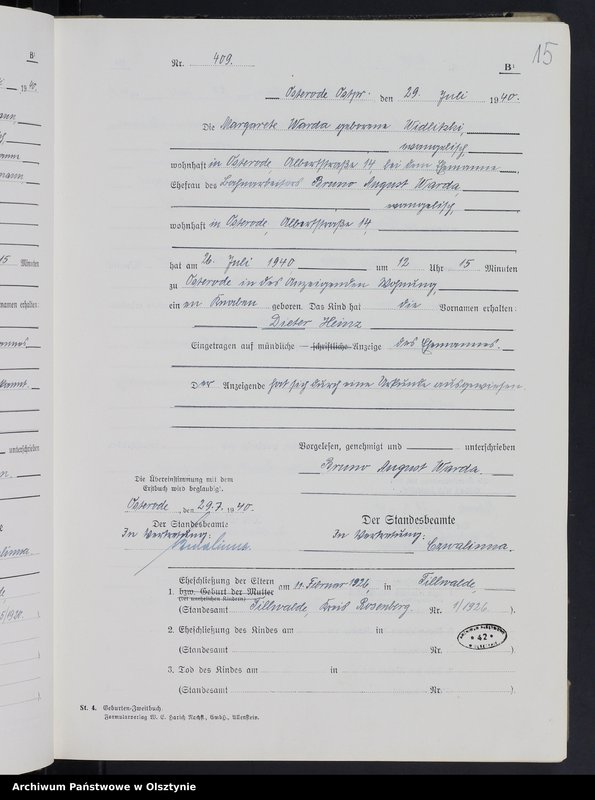 15
Nr. 409. B¹
Osterode Ostpr. den 29. Juli 1940.
Die Margarete Warda geborene Widlitzki,
evangelisch,
wohnhaft in Osterode, Albertstraße 14, bei dem Ehemanne
Ehefrau des Bahnarbeiters Bruno August Warda,
evangelisch,
wohnhaft in Osterode, Albertstraße 14,
hat am 26. Juli 1940 um 12 Uhr 15 Minuten
zu Osterode in des Anzeigenden Wohnung
ein en Knaben geboren. Das Kind hat die Vornamen erhalten:
Dieter Heinz
Eingetragen auf mündliche schriftliche Anzeige des Ehemannes.
Der Anzeigende hat sich durch eine Urkunde ausgewiesen
Vorgelesen, genehmigt und unterschrieben
Bruno August Warda
Die Übereinstimmung mit dem
Erstbuch wird beglaubigt.
Osterode, den 29.7. 1940.
Der Standesbeamte
In Vertretung:
Der Standesbeamte
In Vertretung:
Czwalinna.
Eheschließung der Eltern
1. bzw. Geburt der Mutter am Februar 1926, in Tillwalde,
(bei unehelichen Kindern)
(Standesamt Tillwalde Kreis Rosenberg. Nr. 1/1926.)
2. Eheschließung des Kindes am in
(Standesamt Nr. )
3. Tod des Kindes am in
(Standesamt Nr. )
42
St. 4. Geburten-Zweitbuch.
Formularverlag W. E. Harich Nachf., GmbH., Allenstein.
Archiwum Państwowe w Olsztynie